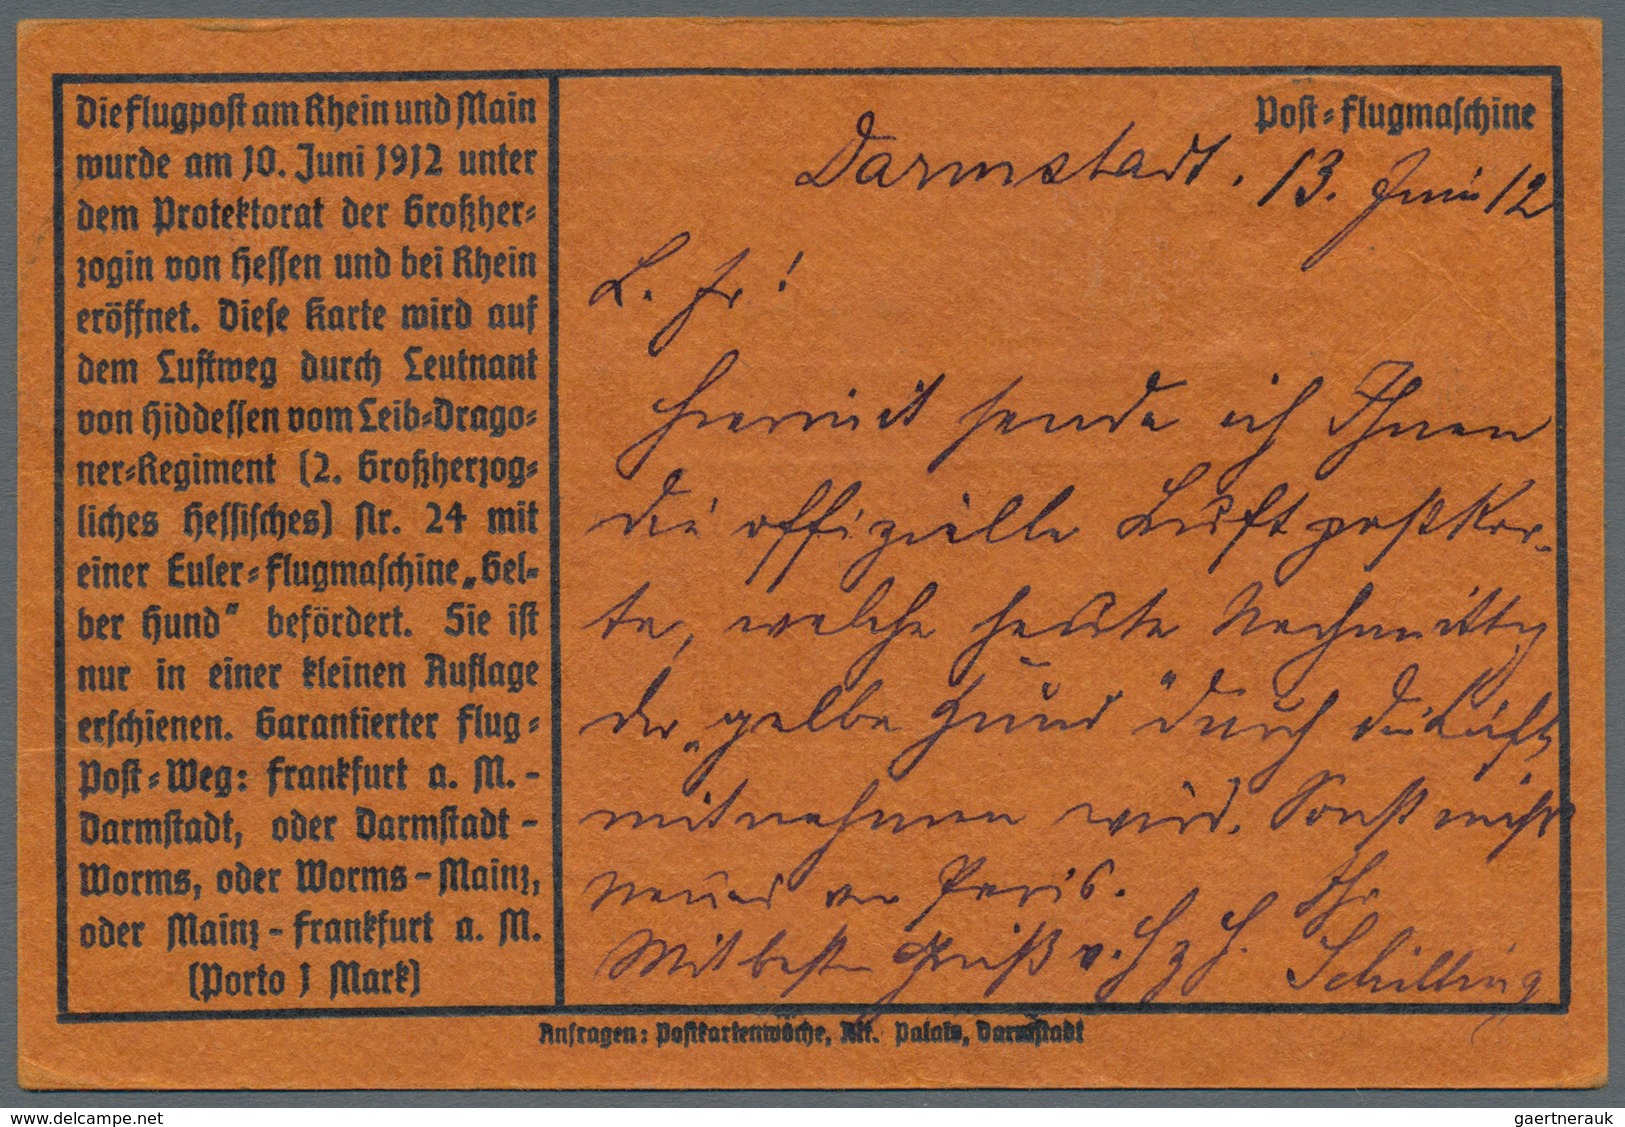 Die Flugpost am Rhein und Main
wurde am 10. Juni 1912 unter
dem Protektorat der Großher-
zogin von Hessen und bei Rhein
eröffnet. Diese Karte wird auf
dem Luftweg durch Leutnant
von Hiddessen vom Leib-Drago-
ner-Regiment (2. Großherzog-
liches Hessisches) Nr. 24 mit
einer Euler-Flugmaschine „Gel-
ber Hund" befördert. Sie ist
nur in einer kleinen Auflage
erschienen. Garantierter Flug-
Post-Weg: Frankfurt a. M. -
Darmstadt, oder Darmstadt -
Worms, oder Worms - Mainz,
oder Mainz - Frankfurt a. M.
(Porto 1 Mark)
Post-Flugmaschine
Darmstadt. 13. Juni 12
L. Fr!
Hiermit sende ich Ihnen
die offizielle Luftpostkar-
te, welche heute Nachmittg
der „gelbe Hund" durch die Lüfte
mitnehmen wird. Sonst nichts
neues Paris.
Mit besten Gruß v. H z H. Ihr
Schilling
Anfragen: Postkartenwoche, Alt. Palais, Darmstadt
gaertnerauk